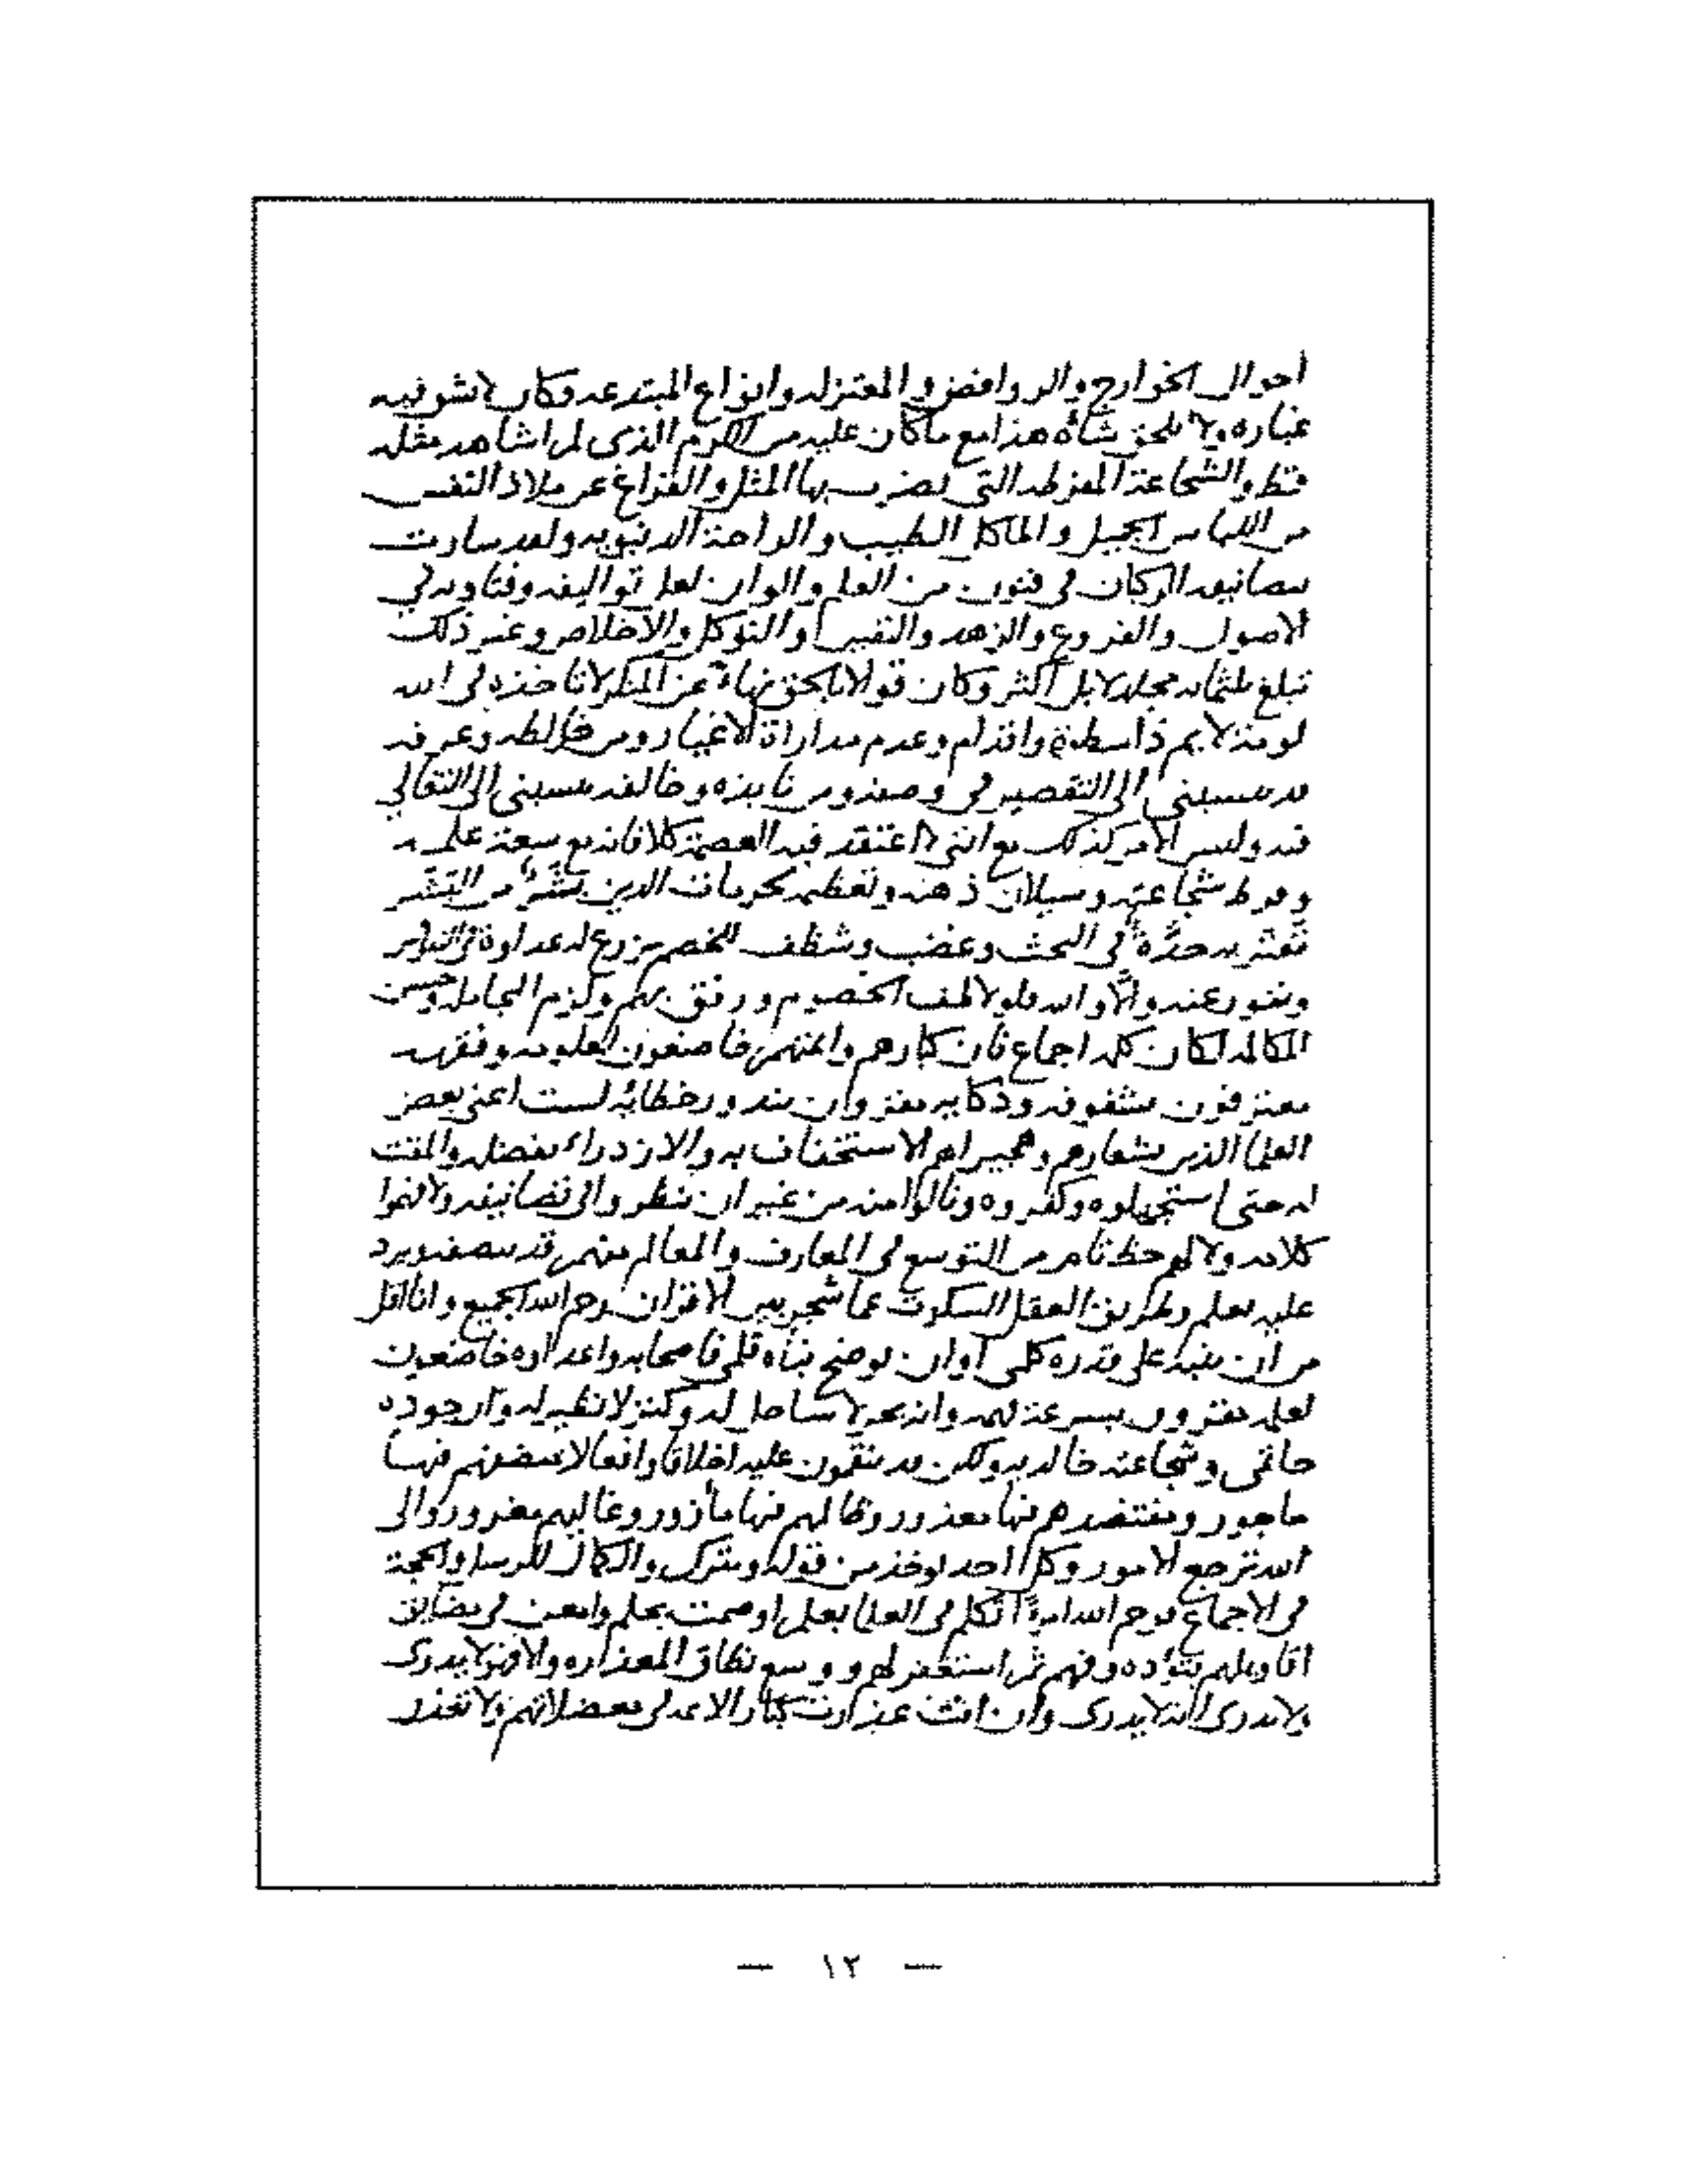 احوال الخوارج والروافض والمعتزله وانواع المبتدعه فكان لا يشق فيه
غباره ولا يلحق شأه هذا مع ما كان عليه من الكرم الذي لم اشاهد مثله
قط والشجاعة المفرطه التي يضرب بها المثل والفراغ عن ملاذ النفس
من اللباس الجميل والماكل الطيب والراحة الدنيويه ولقد سارت
بتصانيفه الركبان في فنون من العلم والوان لعل تواليفه وفتاويه في
الاصول والفروع والزهد والتفسير والتوكل والاخلاص وغير ذلك
تبلغ ثلثمايه مجلد لا بل اكثر وكان قوالا بالحق نهاء عن المنكر لا تاخذه في الله
لومة لايم ذا سطوة واقدام وعدم مداراة الاغيار ومن خالطه وعرفه
قد ينسبني الى التقصير في وصفه ومن نابذه وخالفه ينسبني الى التغالي
فيه وليس الامر كذلك مع انني لا اعتقد فيه العصمة كلا فانه مع سعة علمه
وفرط شجاعته وسيلان ذهنه وتعظيمه لحرمات الدين بشر من البشر
تعتريه حدة في البحث وغضب وشظف للخصم يزرع له عداوة في النفوس
ونفور عنه والا والله فلو لاطف الخصوم ورفق بهم ولزم المجاملة وحسن
المكالمه لكان كلمه اجماع فان كبارهم وائمتهم خاضعون لعلومه وفقهه
معترفون بشفوفه وذكايه مقرون بندور خطائه لست اعني بعض
العلما الذين شعارهم وهجيراهم الاستخفاف به والازدراء بفضله والمقت
له حتى استجهلوه وكفروه ونالوا منه من غير ان ينظروا في تصانيفه ولا فهموا
كلامه ولا لهم حظ تام من التوسع في المعارف والعالم منهم قد ينصفه ويرد
عليه بعلم وطريق العقل السكوت عما شجر بين الاقران رحم الله الجميع وانا اقل
من ان ينبه على قدره كلمي او ان يوضح نبأه قلمي فاصحابه واعداوه خاضعون
لعلمه مقرون بسرعة فهمه وانه بحر لا ساحل له وكنز لا نظير له وان جوده
حاتمي وشجاعته خالديه ولكن قد ينقمون عليه اخلاقا وافعالا منصفهم فيها
ماجور ومقتصدهم فيها معذور وظالمهم فيها مأزور وغاليهم مغرور والى
الله ترجع الامور وكل احد يوخذ من قوله ويترك والكمال للرسل والحجة
في الاجماع فرحم الله امرءا تكلم في العلما بعلم او صمت بحلم وامعن في مضايق
اقاويلهم بتؤده وفهم ثم استغفر لهم ووسع نطاق المعذره والا فهو لا يدري
ولا يدري انه لا يدري وان انت عذرت كبار الائمه في معضلاتهم ولا تعذر
— ١٢ —